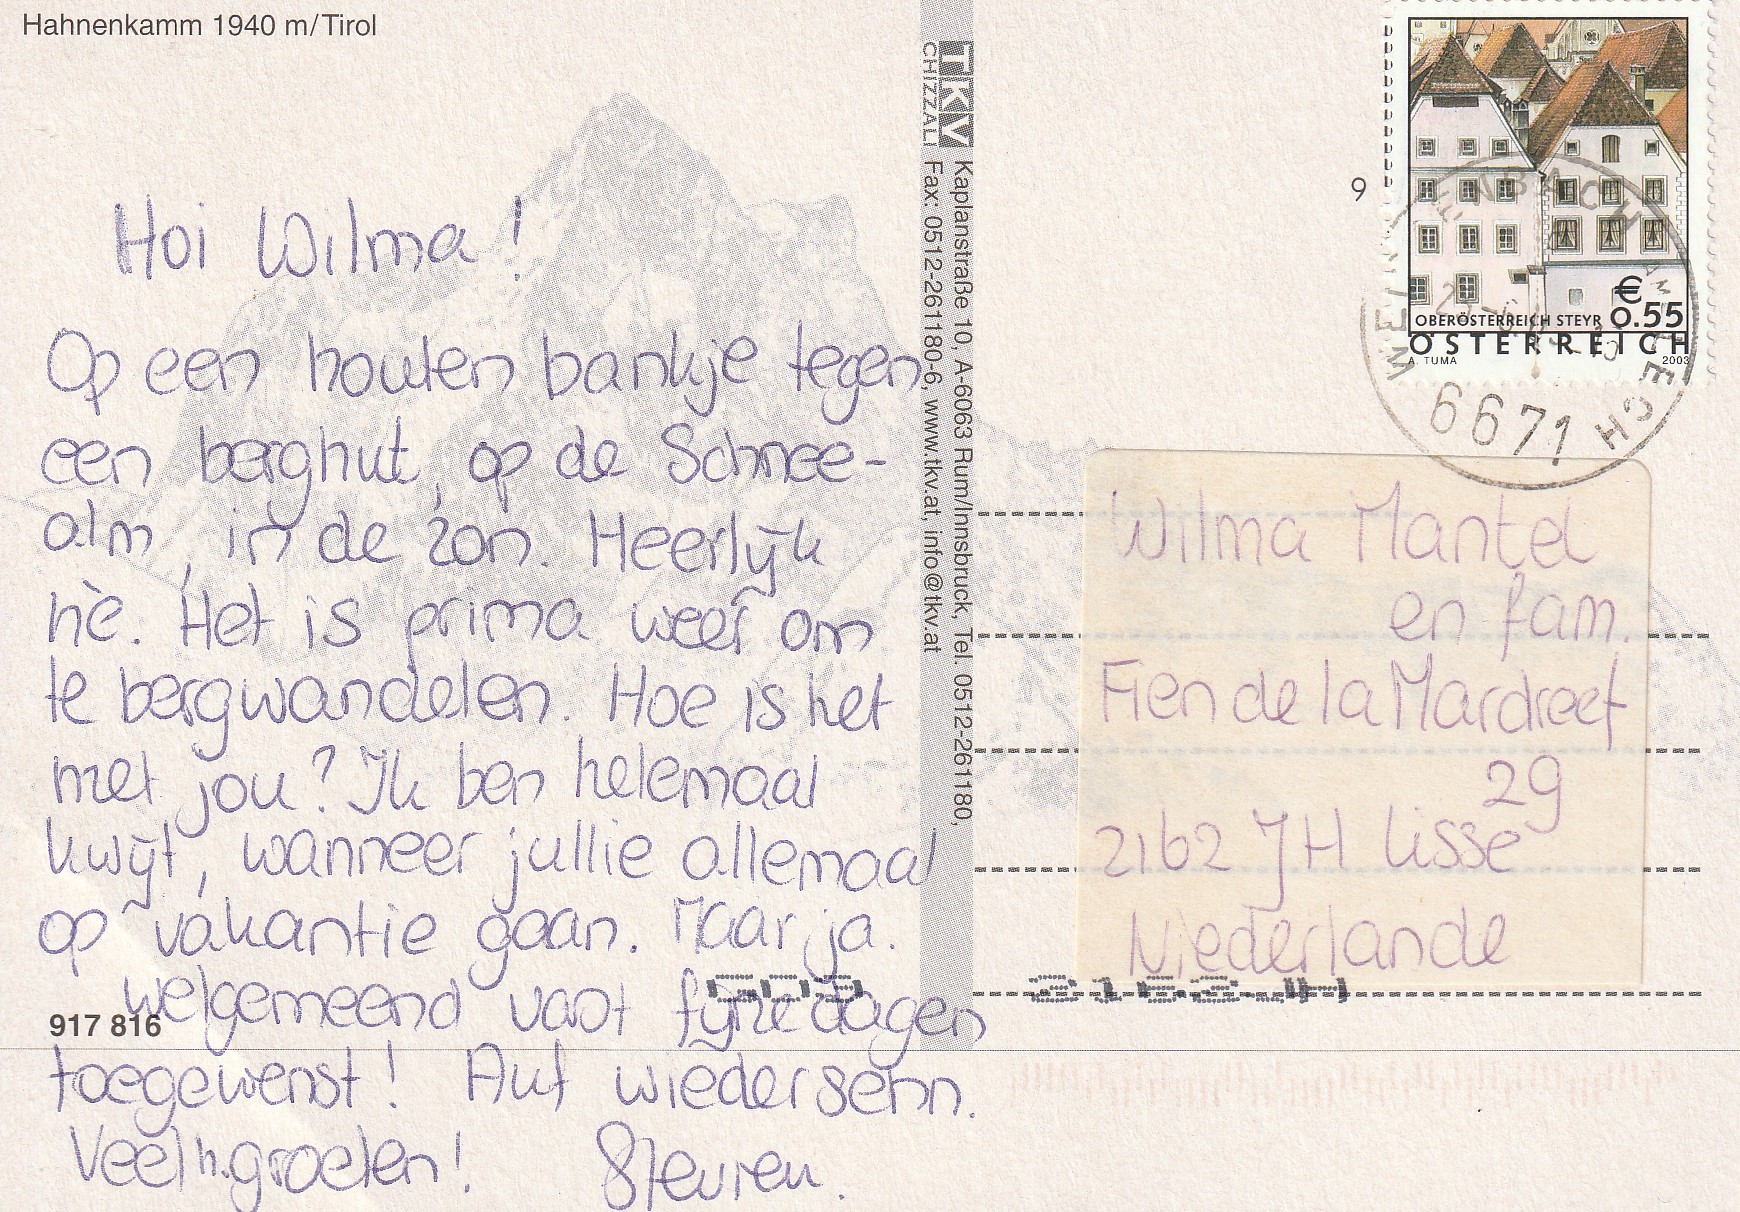 Hahnenkamm 1940 m/Tirol
Hoi Wilma!
Op een houten bankje tegen
een berghut, op de Schnee-
alm, in de zon. Heerlijk
hè. Het is prima weer om
te bergwandelen. Hoe is het
met jou? Ik ben helemaal
kwijt, wanneer jullie allemaal
op vakantie gaan. Maar ja.
welgemeend vast fijne dagen
toegewenst! Auf wiedersehn.
Veel h. groeten!
917 816
TKV
CHIZZALI
Kaplanstraße 10, A-6063 Rum/Innsbruck, Tel. 0512-261180,
Fax: 0512-261180-6, www.tkv.at, info@tkv.at
9
€ 0.55
OBERÖSTERREICH STEYR
ÖSTERREICH
A. TUMA
2003
6671
Wilma Mantel
en fam.
Fien de la Mardreef
29
2162 JH Lisse
Niederlande
2162JH